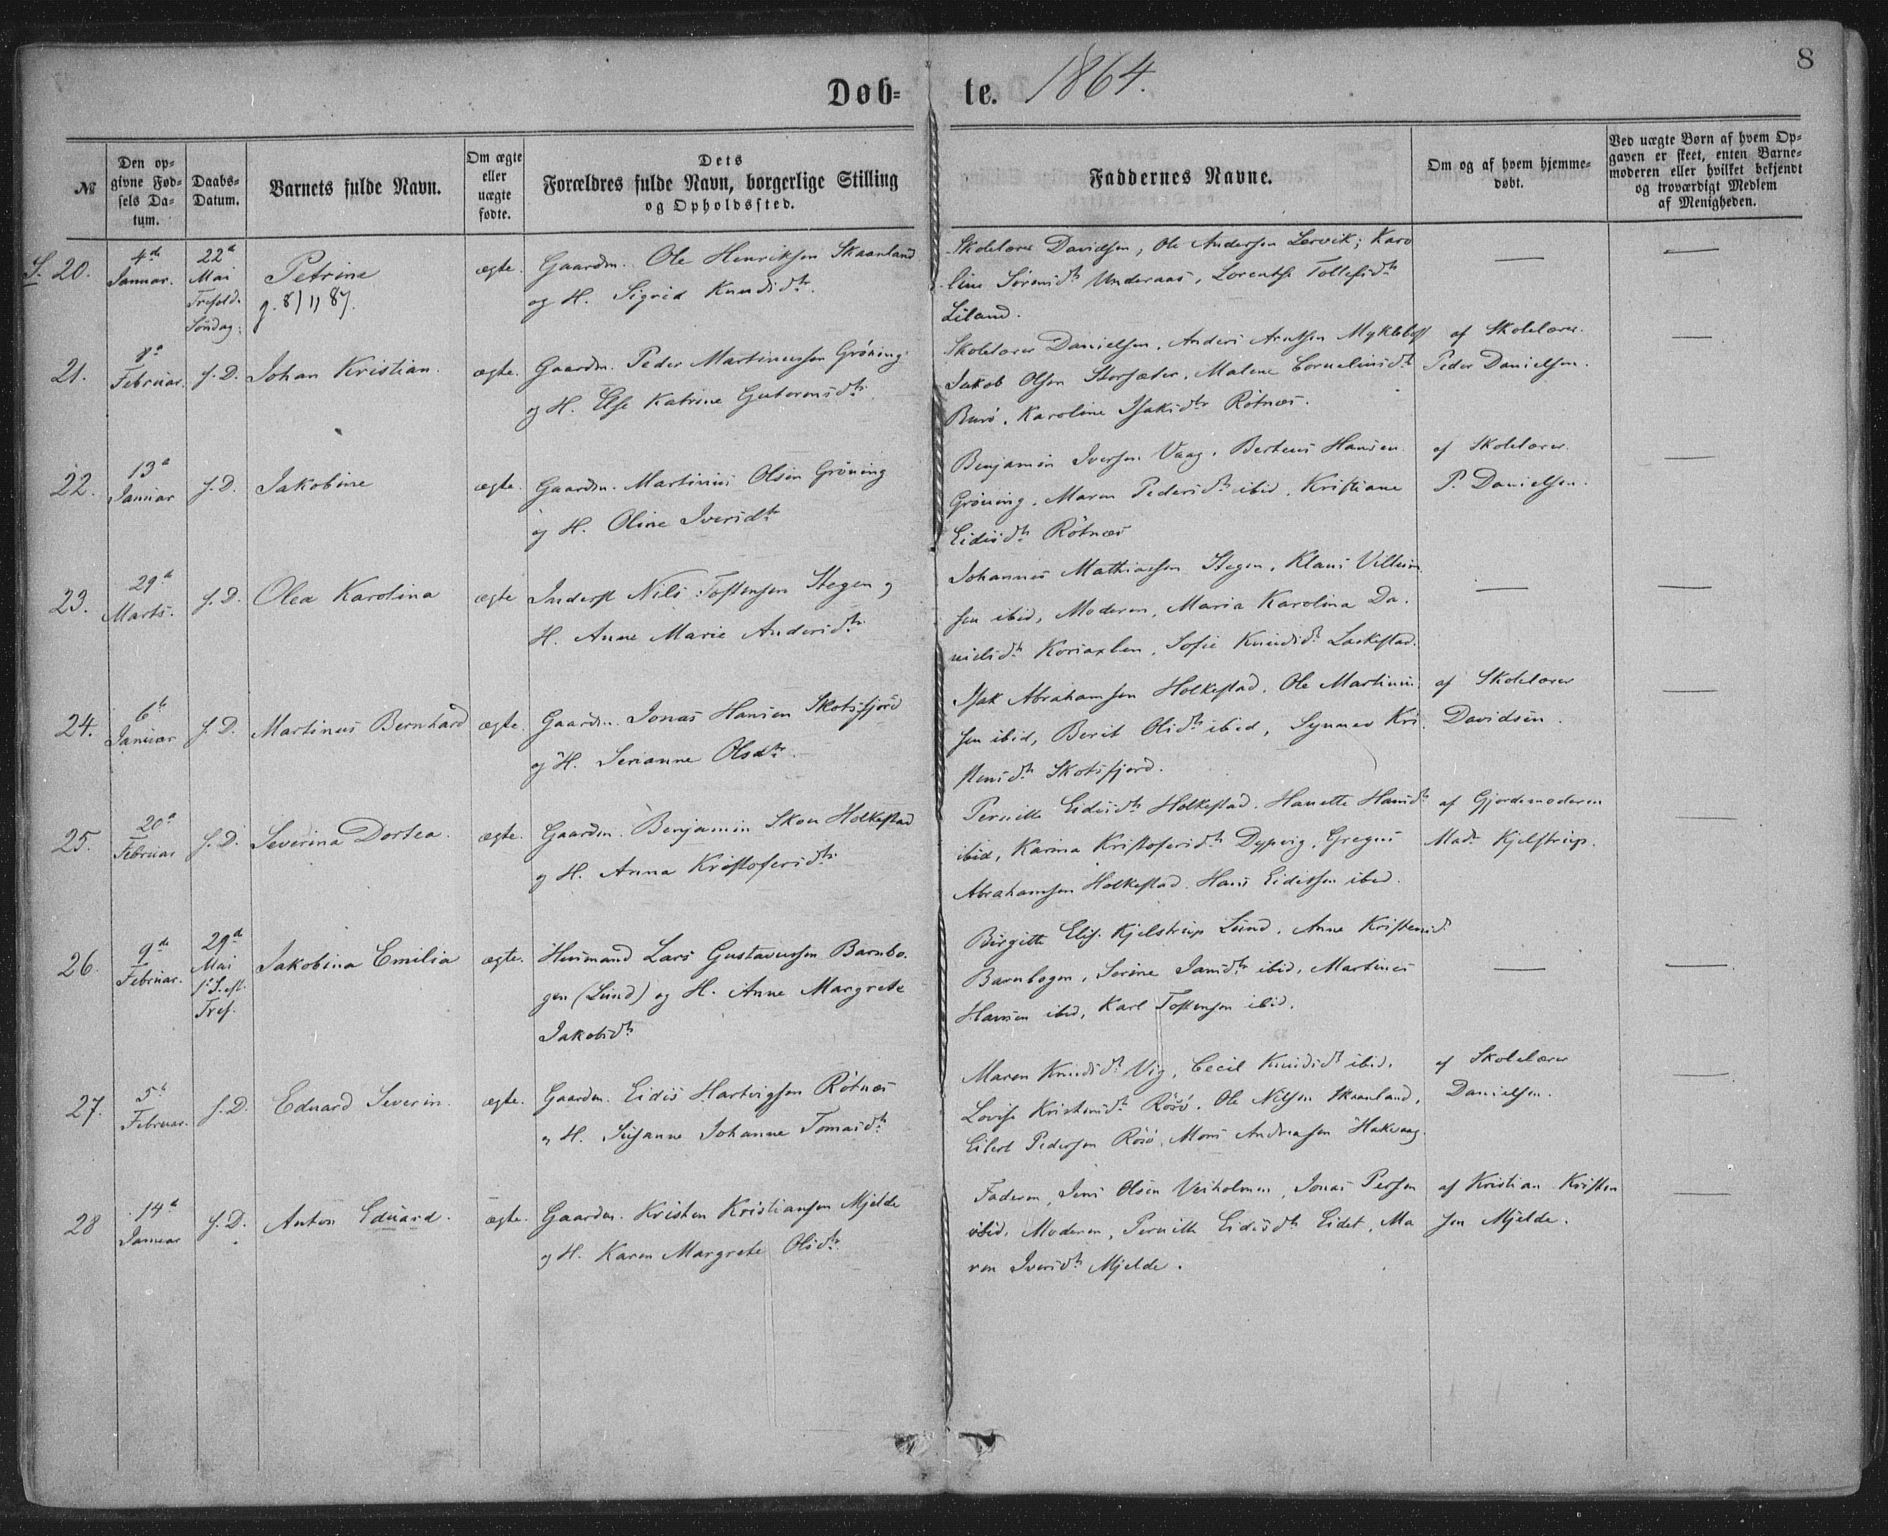 8
Døb=
te. 1864.
№
Den op=
givne Fød=
sels Da=
tum.
Daabs=
Datum.
Barnets fulde Navn.
Om ægte
eller
uægte
fødte.
Dets
Forældres fulde Navn, borgerlige Stilling
og Opholdssted.
Faddernes Navne.
Om og af hvem hjemme=
døbt.
Ved uægte Børn af hvem Op=
gaven er skeet, enten Barne=
moderen eller hvilket bekjendt
og troværdigt Medlem
af Menigheden.
S. 20.
4de
Januar.
22d
Mai
Trefold.
Søndag.
Petrine
g. 8/11 87.
ægte.
Gaardm. Ole Henriksen Skaanland
og H. Sigrid Knudsdtr.
Skolelærer Davidsen, Ole Andersen Lervik, Karo
line Sørensdtr Underaas, Lorentse Tollefsdtr
Liland.
21.
Februar.
f. D.
Johan Kristian.
ægte.
Gaardm. Peder Martinussen Grøning
og H. Else Katrine Guttormsdtr.
Skolelærer Danielsen, Anders Arntsen Myklebost
Jakob Olsen Storsæter, Malene Corneliusdtr
Burø, Karoline Isaksdtr Røtnæs.
af Skolelærer
Peder Danielsen.
22.
13d
Januar
f. D.
Jakobine
ægte.
Gaardm. Martinus Olsen Grøning
og H. Oline Iversdtr
Benjamin Iversen Vaag, Berteus Hansen
Grøning, Maren Pedersdtr ibid, Kristiane
Eidisdtr Røtnæs
af Skolelærer
P. Danielsen.
23.
29d
Marts.
f. D.
Olea Karolina
ægte
Inderst Nils Tostensen Stegen og
H. Anne Marie Andersdtr
Johannes Mathiassen Stegen, Klaus Villum
sen ibid, Moderen, Maria Karolina Da.
nielsdtr, Sofie Knudsdtr Laskestad.
24.
6te
Januar
f. D.
Martinus Bernhard
ægte.
Gaardm. Jonas Hansen Skotsfjord
og H. Serianne Olsdtr.
Isak Abrahamsen Holkestad, Ole Martinus
sen ibid, Berit Olsdtr ibid, Synnev Kri
stensdtr Skotsfjord.
af Skolelærer
Davidsen.
25.
20d
Februar
f. D.
Severina Dortea.
ægte.
Gaardm. Benjamin Skou Holkestad
og H. Anna Kristofersdtr.
Pernille Eidisdtr Holkestad, Hanette Hansdtr
ibid, Karina Kristofersdtr Dypvig, Gregus
Abrahamsen Holkestad, Hans Eidissen ibid.
af Gjordemoderen
Mad. Kjelstrup.
26.
9de
Februar.
29d
Mai
1ste S. eft.
Tref.
Jakobina Emilia
ægte.
Huusmand Lars Gustavussen Barnbo.
gen (Lund) og H. Anne Margrete
Jakobsdtr
Birgitte Elis. Kjelstrup Lund, Anne Kristensdtr
Barnbogen, Serine Jansdtr ibid, Martinus
Hansen ibid, Karl Tostensen ibid.
27.
5te
Februar.
f. D.
Eduard Severin.
ægte.
Gaardm. Eidis Hartvigsen Røtnæs
og H. Susanne Johanne Tomasdtr
Maren Knudsdtr Vig, Cecil Knudsdtr ibid,
Lovise Kristensdtr Røsø, Ole Nilsen Skaanland,
Eilert Pedersen Røsø, Mons Andreassen Hakvaag.
af Skolelærer
Danielsen.
28
14d
Januar
f. D.
Anton Eduard.
ægte.
Gaardm. Kristen Kristiansen Mjelde
og H. Karen Margrete Olsdtr
Faderen, Jens Olsen Veiholmen, Jonas Persen
ibid, Moderen, Pernille Eidisdtr Eidet, Ma
ren Iversdtr Mjelde.
af Kristian Kristen
sen Mjelde.